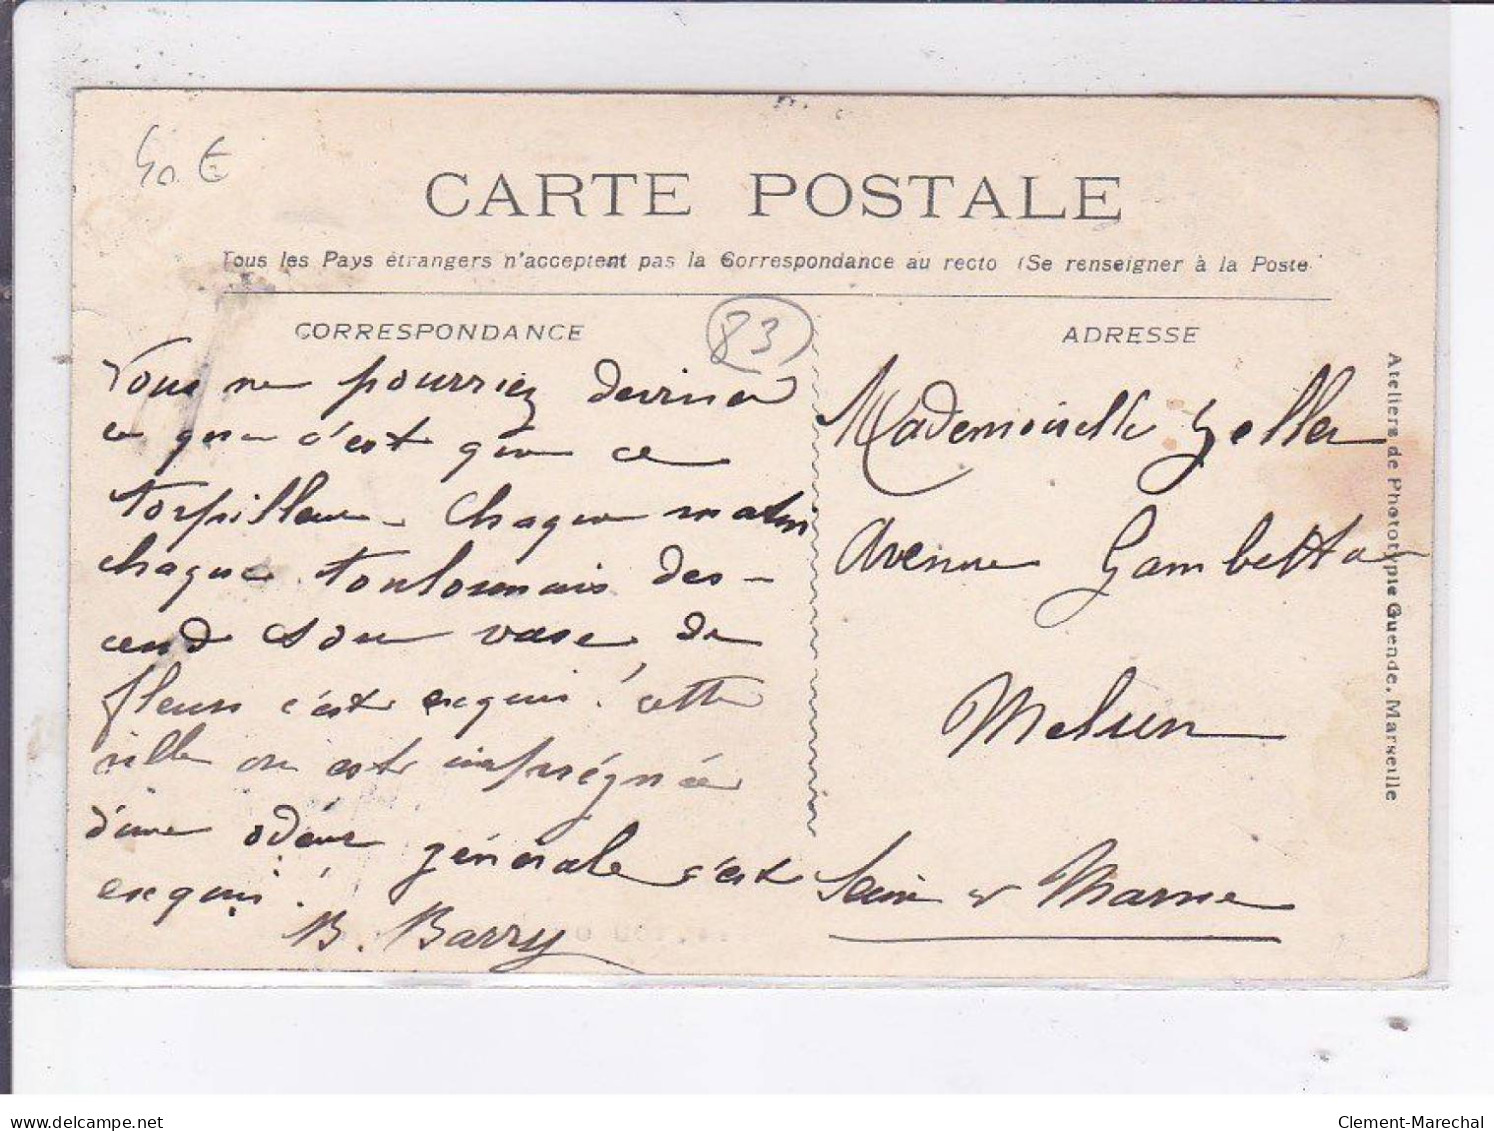 40 €
CARTE POSTALE
Tous les Pays étrangers n'acceptent pas la Correspondance au recto (Se renseigner à la Poste)
CORRESPONDANCE
83
ADRESSE
Vous ne pourriez deviner
ce que c'est que ce
torpilleur - Chaque matin
chaque toulonnais des-
cend son vase de
fleurs c'est exquis! cette
ville on est imprégné
d'une odeur générale c'est
exquis!
B. Barry
Mademoiselle Zeller
Avenue Gambetta
Melun
Seine & Marne
Ateliers de Phototypie Guende, Marseille
www.delcampe.net
Clement-Marechal